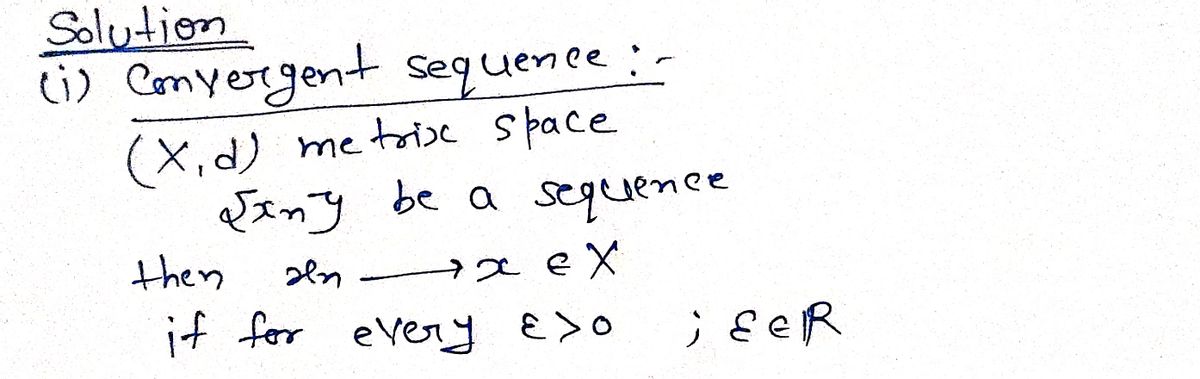 Solution
(i) Convergent sequence :-
(X,d) metrix space
{xn} be a sequence
then xn → x ∈ X
if for every ε>0 ; ε∈ℝ